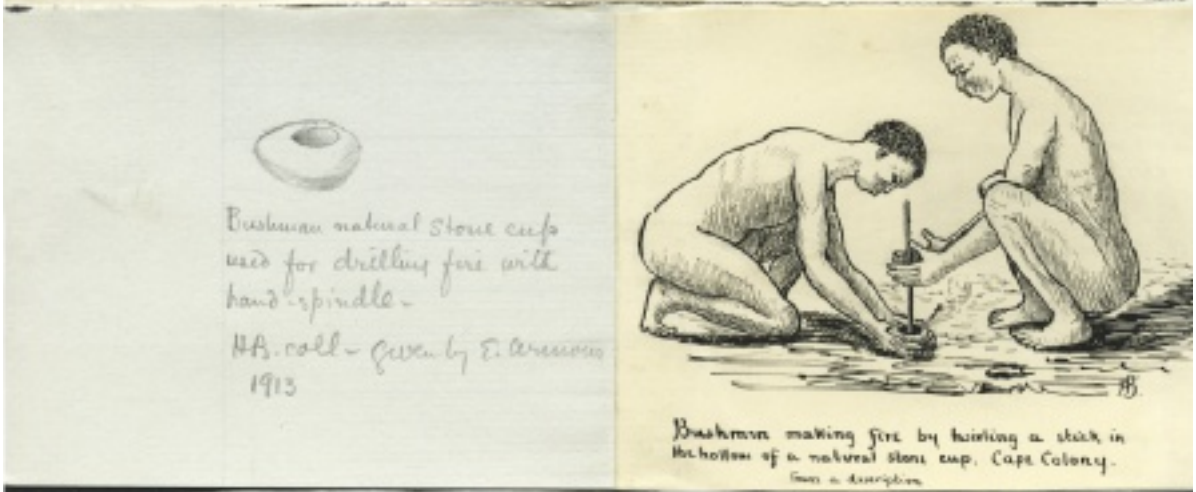 Bushman natural stone cup
used for drilling fire with
hand-spindle -
HB. coll - given by E. Armour
1913
HB.
Bushmen making fire by twirling a stick in
the hollow of a natural stone cup. Cape Colony.
From a description